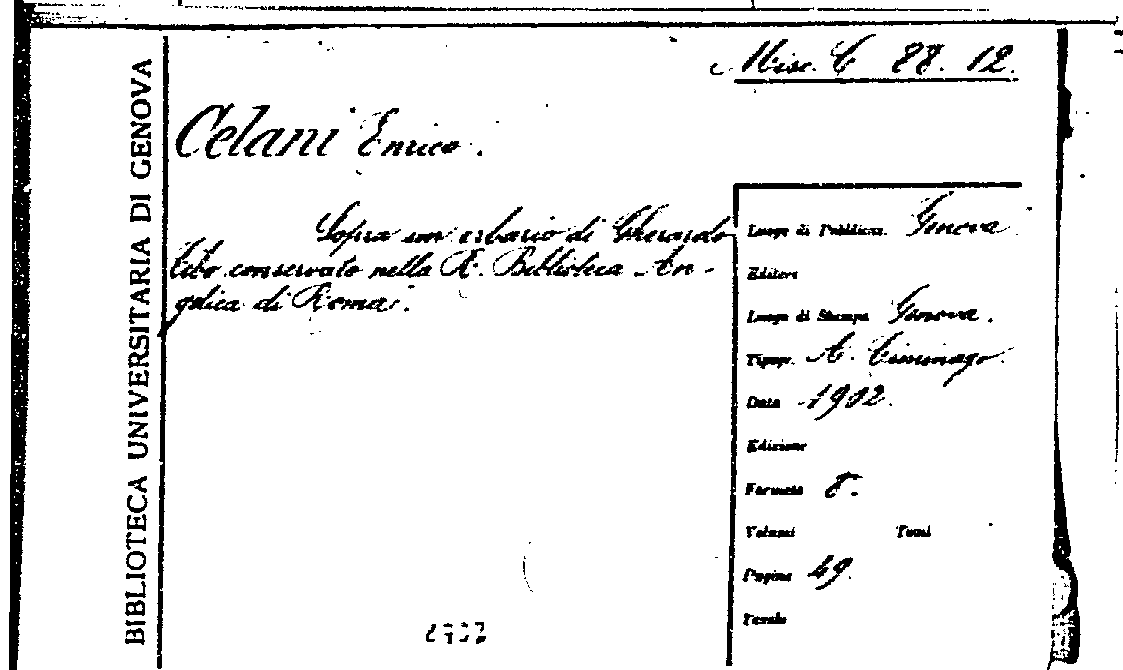 BIBLIOTECA UNIVERSITARIA DI GENOVA
Misc. C 88. 12.
Celani Enrico.
Sopra un erbario di Gherardo
Cibo conservato nella R. Biblioteca An-
gelica di Roma.
Luogo di Pubblicaz. Genova
Editore
Luogo di Stampa Genova.
Tipogr. A. Ciminago.
Data 1902.
Edizione
Formato 8.
Volumi Tomi
Pagine 49.
Tavole